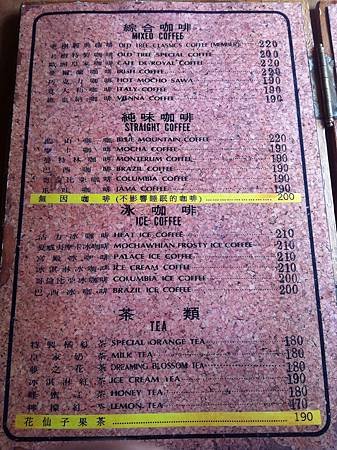 綜合咖啡
MIXED COFFEE
老樹經典咖啡 OLD TREE CLASSICS COFFEE (MEMBER) 220
老樹特製咖啡 OLD TREE SPECIAL COFFEE 220
歐洲皇家咖啡 CAFE DE ROYAL COFFEE 220
愛爾蘭咖啡 IRISH COFFEE 190
HOT MOCHO SAWA 190
義大利咖啡 ITALY COFFEE 190
維也納咖啡 VIENNA COFFEE 190
純味咖啡
STRAIGHT COFFEE
藍山咖啡 BLUE MOUNTAIN COFFEE 220
摩卡咖啡 MOCHA COFFEE 190
曼特林咖啡 MONTERUM COFFEE 190
巴西咖啡 BRAZIL COFFEE 190
哥倫比亞咖啡 COLUMBIA COFFEE 190
爪哇咖啡 JAVA COFFEE 190
無因咖啡(不影響睡眠的咖啡) 200
冰咖啡
ICE COFFEE
活力冰咖啡 HEAT ICE COFFEE 210
夏威夷摩卡冰咖啡 MOCHAWHIAN FROSTY ICE COFFEE 210
宮殿冰咖啡 PALACE ICE COFFEE 210
冰淇淋冰咖啡 ICE CREAM COFFEE 210
哥倫比亞冰咖啡 COLUMBIA ICE COFFEE 200
巴西冰咖啡 BRAZIL ICE COFFEE 200
茶類
TEA
特製橘紅茶 SPECIAL ORANGE TEA 180
皇家奶茶 MILK TEA 180
夢之花茶 DREAMING BLOSSOM TEA 180
冰淇淋紅茶 ICE CREAM TEA 190
蜂蜜紅茶 HONEY TEA 180
檸檬紅茶 LEMON TEA 170
花仙子果茶 190